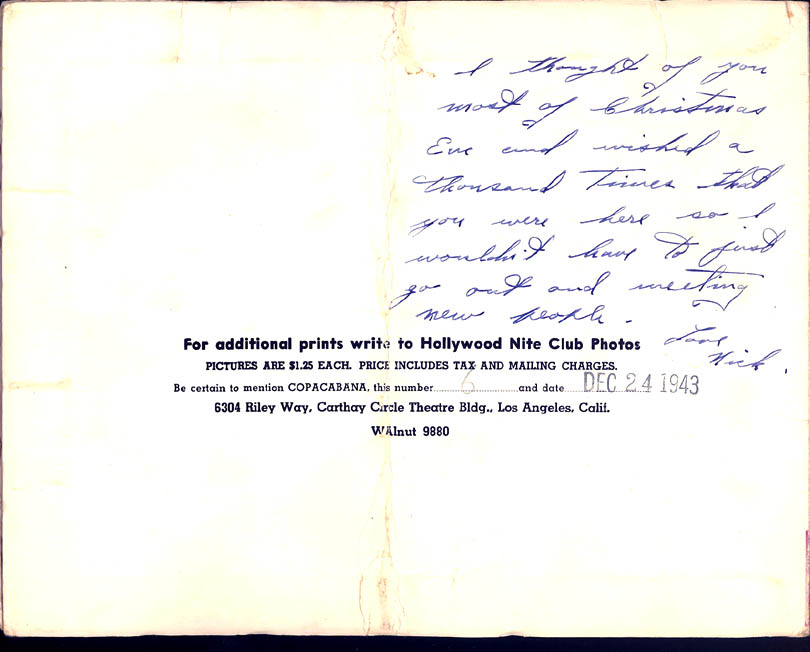 I thought of you
most of Christmas
Eve and wished a
thousand times that
you were here so I
wouldn't have to just
go out and meeting
new people.
Love
Nick.
For additional prints write to Hollywood Nite Club Photos
PICTURES ARE $1.25 EACH. PRICE INCLUDES TAX AND MAILING CHARGES.
Be certain to mention COPACABANA, this number 6 and date DEC 24 1943
6304 Riley Way, Carthay Circle Theatre Bldg., Los Angeles, Calif.
WAlnut 9880